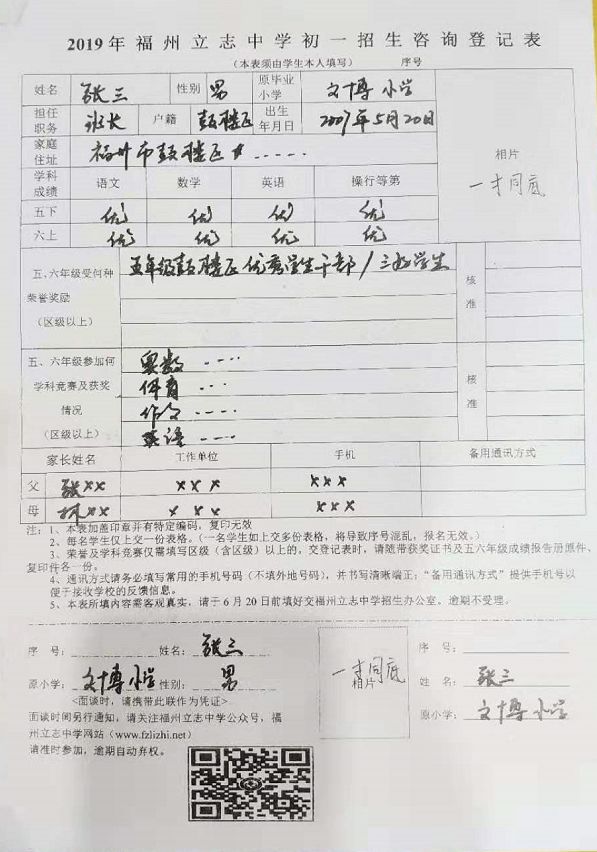 2019年福州立志中学初一招生咨询登记表
（本表须由学生本人填写） 序号
姓名 张三 性别 男 原毕业小学 文博小学
担任职务 班长 户籍 鼓楼区 出生年月日 2007年5月20日
家庭住址 福州市鼓楼区 相片
一寸同底
学科成绩 语文 数学 英语 操行等第
五下 优 优 优 优
六上 优 优 优 优
五、六年级受何种荣誉奖励（区级以上） 五年级鼓楼区优秀学生干部/三好学生 核准
五、六年级参加何学科竞赛及获奖情况（区级以上） 奥数 ---- 核准
体育 ---
作文 ----
英语 ----
家长姓名 工作单位 手机 备用通讯方式
父 张×× ××× ×××
母 林×× ××× ×××
注：1、本表加盖印章并有特定编码，复印无效
2、每名学生仅上交一份表格。（一名学生如上交多份表格，将导致序号混乱，报名无效。）
3、荣誉及学科竞赛仅需填写区级（含区级）以上的，交登记表时，请随带获奖证书及五六年级成绩报告册原件、
复印件各一份。
4、通讯方式请务必填写常用的手机号码（不填外地号码），并书写清晰端正；“备用通讯方式”提供手机号以
便于接收学校的反馈信息。
5、本表所填内容需客观真实，请于6月20日前填好交福州立志中学招生办公室。逾期不受理。
序 号： 姓名： 张三
原小学： 文博小学 性别： 男
<面谈时，请携带此联作为凭证>
面谈时间另行通知，请关注福州立志中学公众号，福
州立志中学网站（www.fzlizhi.net）
请准时参加，逾期自动弃权。
一寸同底
相片
序 号：
姓 名： 张三
原小学： 文博小学